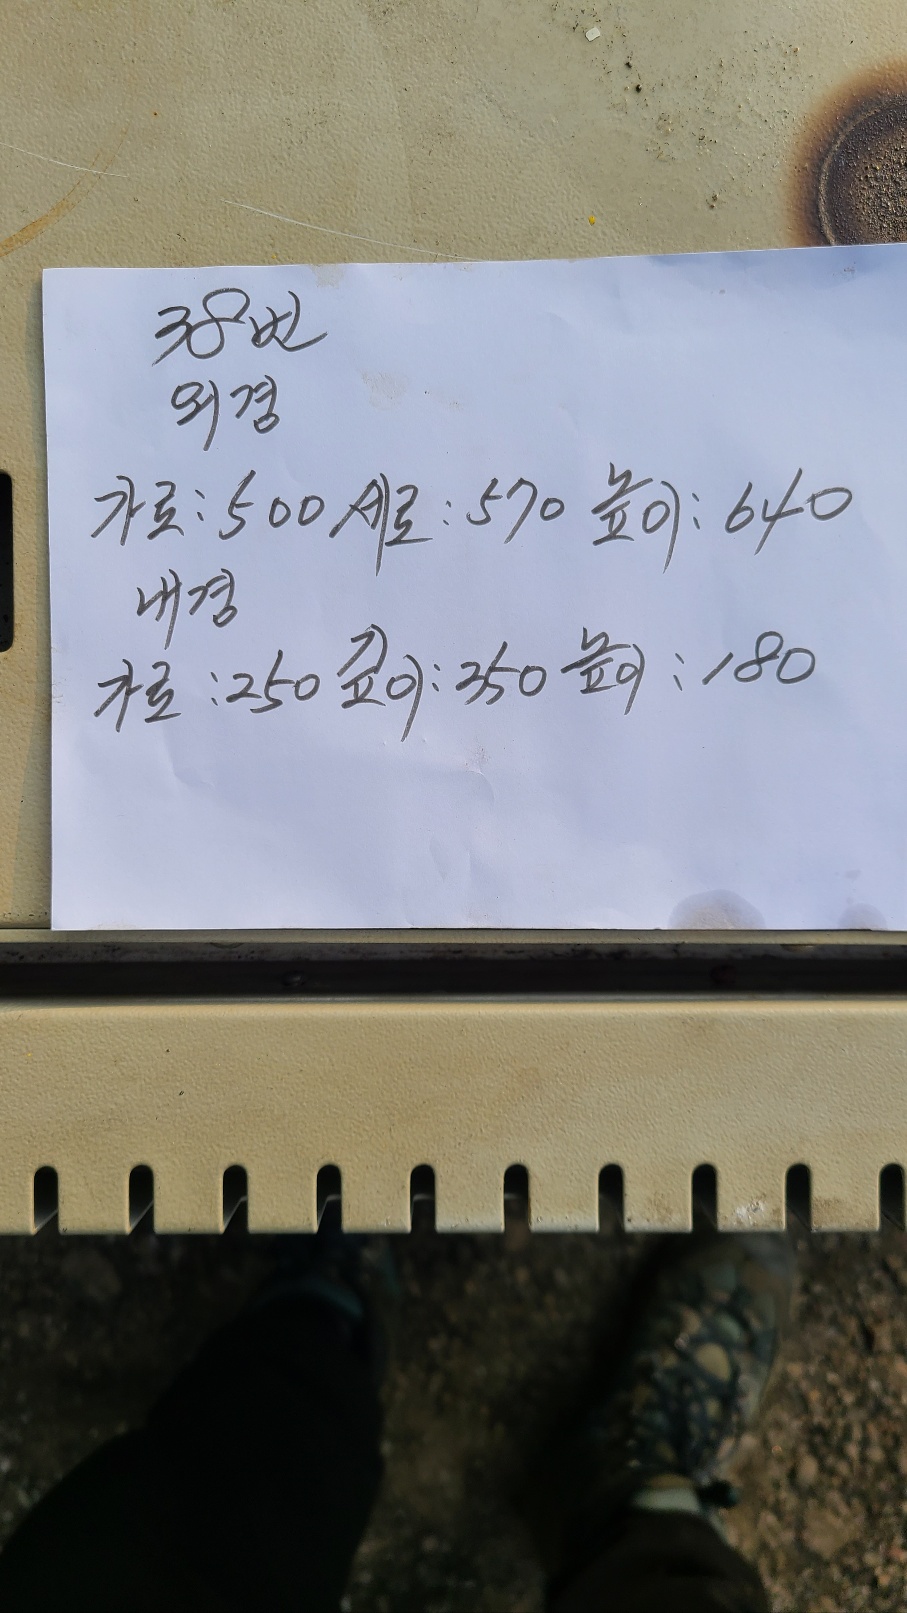 38번
외경
가로:500 세로:570 높이:640
내경
가로:250 깊이:350 높이:180